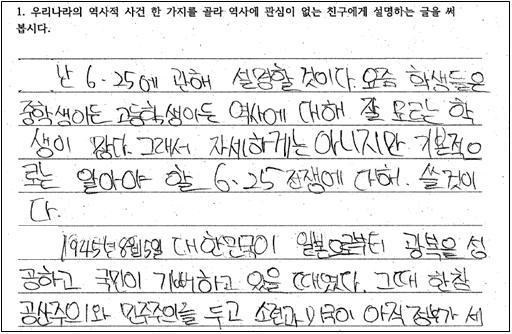 1. 우리나라의 역사적 사건 한 가지를 골라 역사에 관심이 없는 친구에게 설명하는 글을 써
봅시다.
난 6·25에 관해 설명할 것이다. 요즘 학생들은
중학생이든 고등학생이든 역사에 대해 잘 모르는 학
생이 많다. 그래서 자세하게는 아니지만 기본적으
로는 알아야 할 6·25 전쟁에 대해 쓸 것이
다.
1945년 8월 15일 대한민국이 일본으로부터 광복을 성
공하고 국민이 기뻐하고 있을 때였다. 그때 한창
공산주의와 민주주의를 두고 소련과 미국이 아직 정부가 세